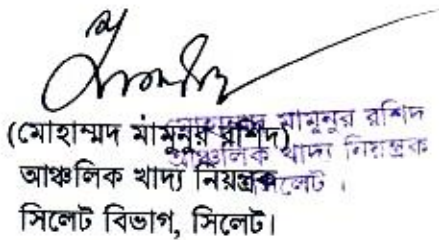 (মোহাম্মদ মামুনুর রশিদ)
আঞ্চলিক খাদ্য নিয়ন্ত্রক
সিলেট বিভাগ, সিলেট।
মামুনুর রশিদ
আঞ্চলিক খাদ্য নিয়ন্ত্রক
সিলেট।